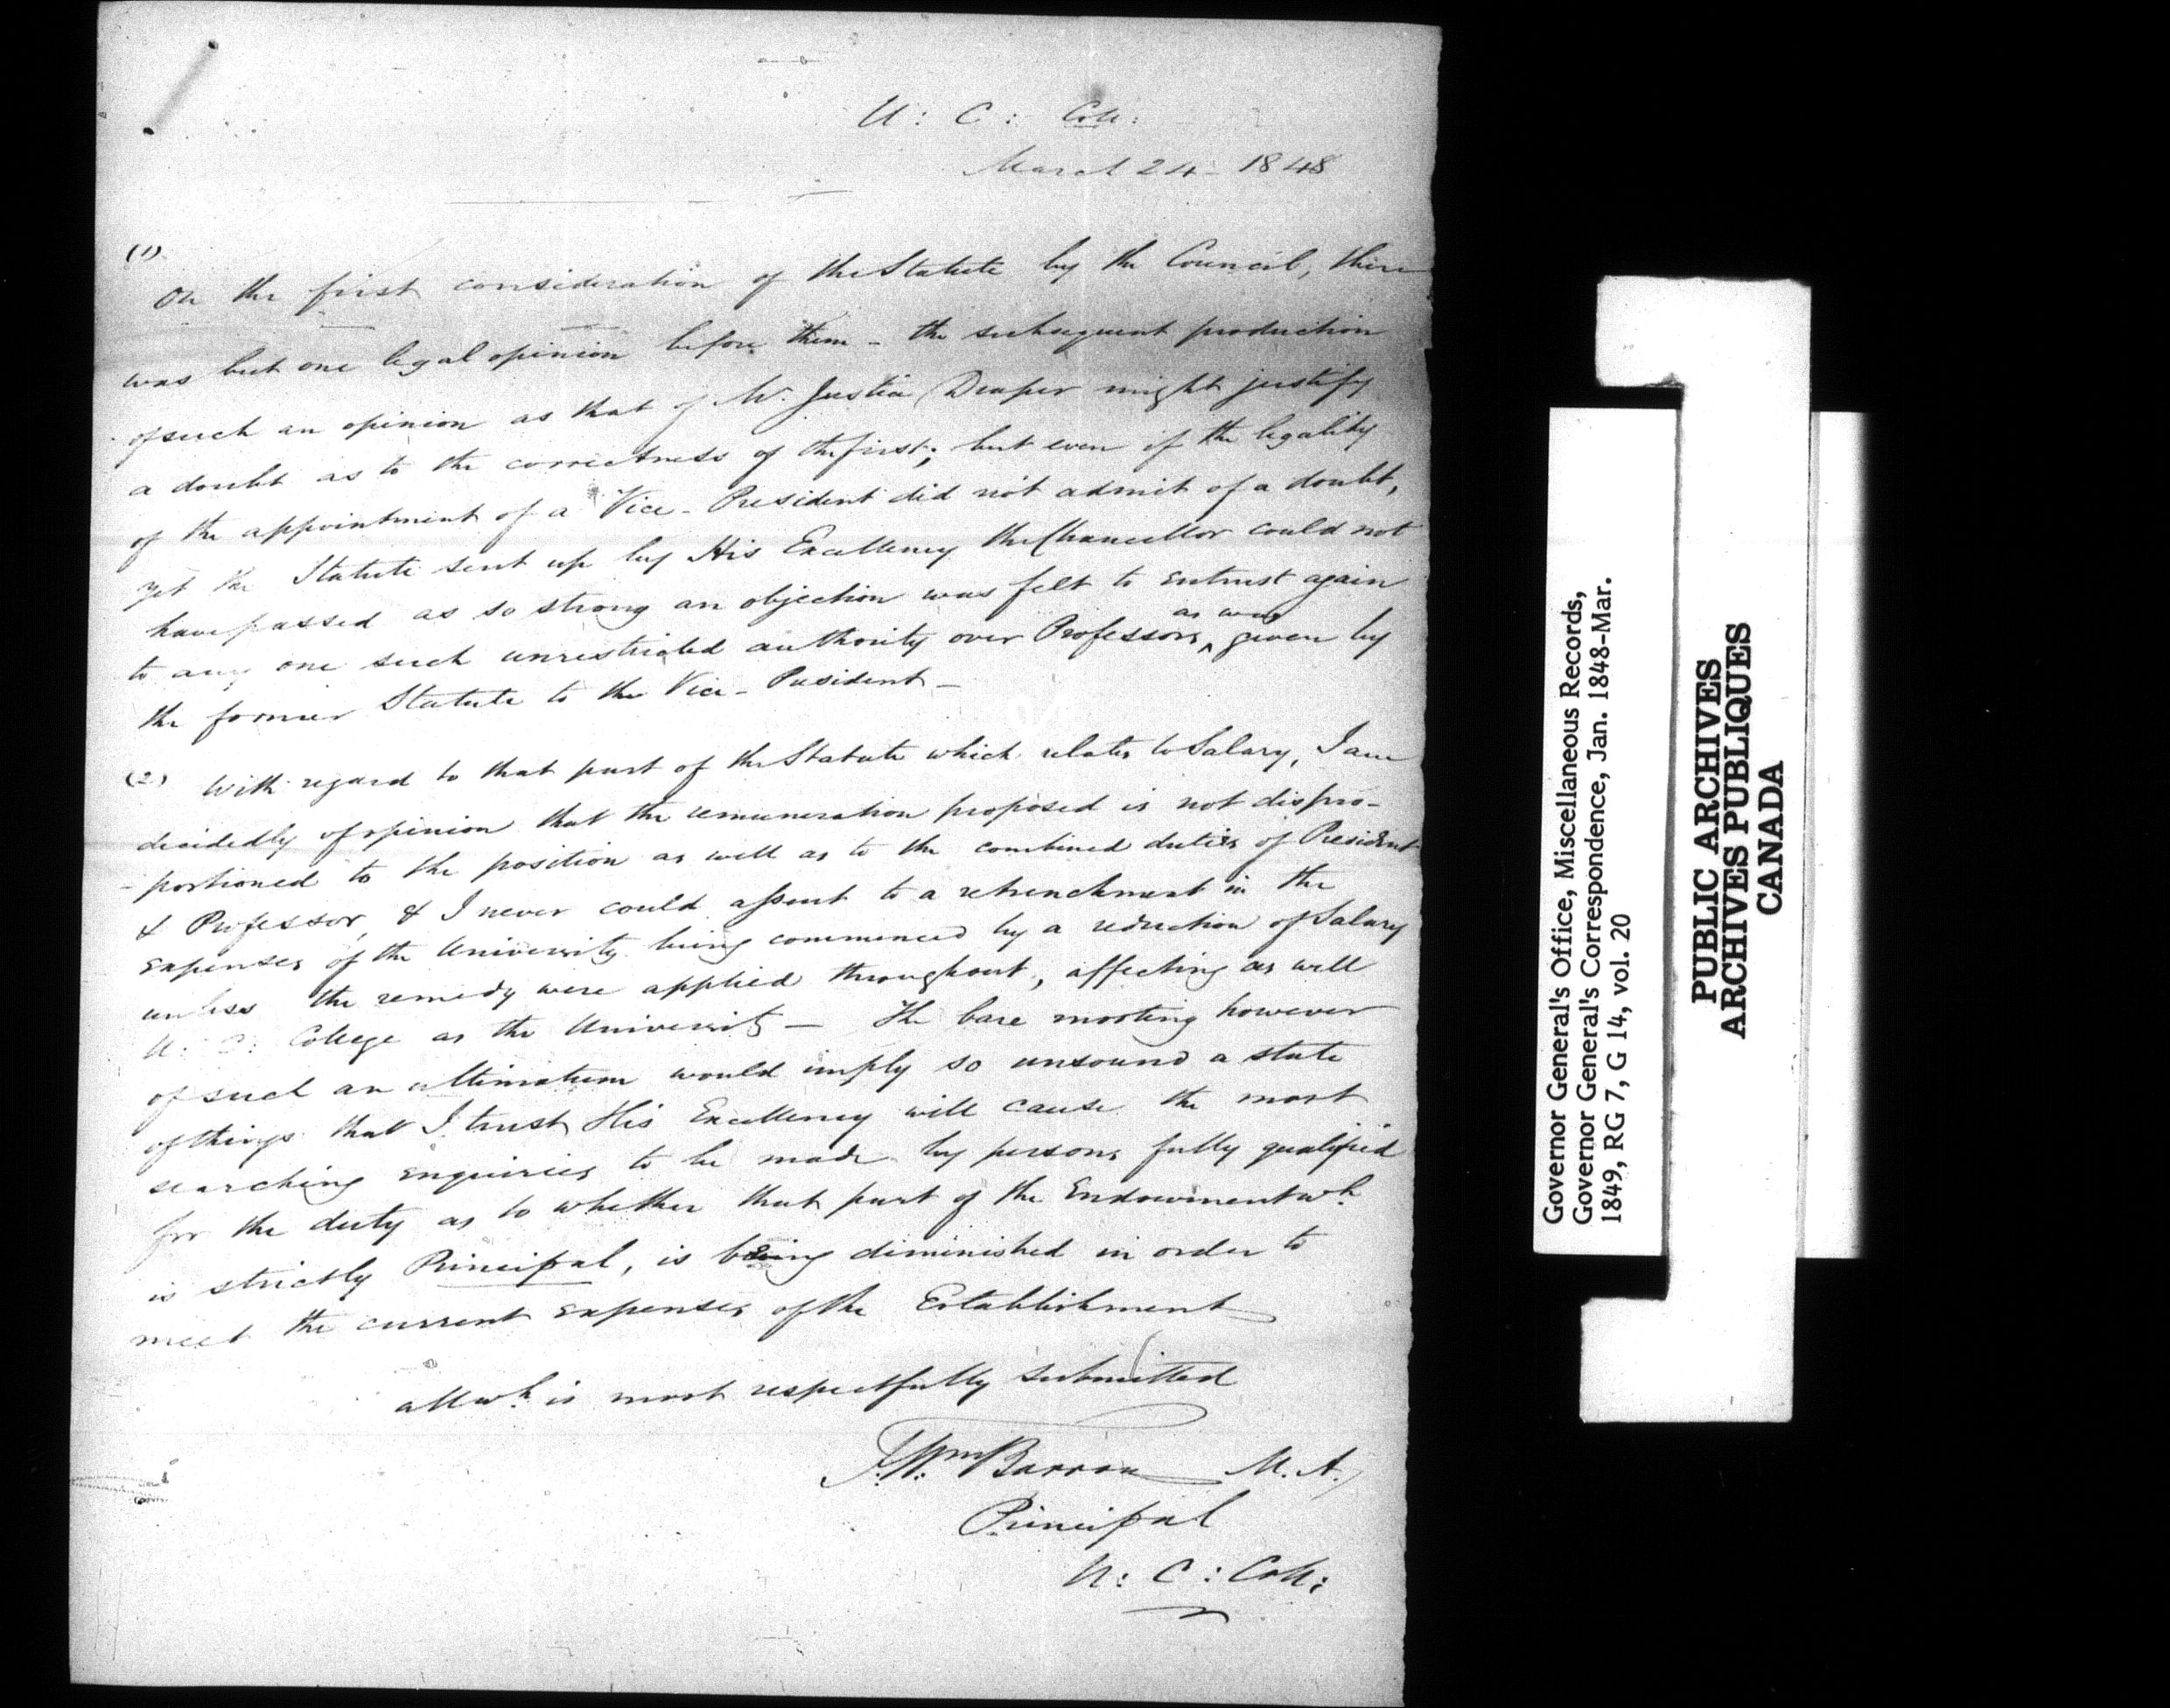 U: C: Coll:
March 24 - 1848
(1)
On the first consideration of the Statute by the Council, there
was but one legal opinion before them - the subsequent production
of such an opinion as that of Mr. Justice Draper might justify
a doubt as to the correctness of the first; but even if the legality
of the appointment of a Vice-President did not admit of a doubt,
yet the Statute sent up by His Excellency the Chancellor could not
have passed as so strong an objection was felt to entrust again
to any one such unrestricted authority over Professors, ^ as was given by
the former Statute to the Vice-President -
(2) With regard to that part of the Statute which relates to Salary, I am
decidedly of opinion that the remuneration proposed is not dispro-
-portioned to the position as well as to the combined duties of President
& Professor, & I never could assent to a retrenchment in the
expenses of the University being commenced by a reduction of Salary
unless the remedy were applied throughout, affecting as well
U: C: College as the University - The bare mooting however
of such an ultimatum would imply so unsound a state
of things that I trust His Excellency will cause the most
searching enquiries to be made by persons fully qualified
for the duty as to whether that part of the Endowment wh.
is strictly Principal, is being diminished in order to
meet the current expenses of the Establishment
all wh. is most respectfully submitted
F. Wm Barron M.A.
Principal
U: C: Coll:
Governor General's Office, Miscellaneous Records,
Governor General's Correspondence, Jan. 1848-Mar.
1849, RG 7, G 14, vol. 20
PUBLIC ARCHIVES
ARCHIVES PUBLIQUES
CANADA